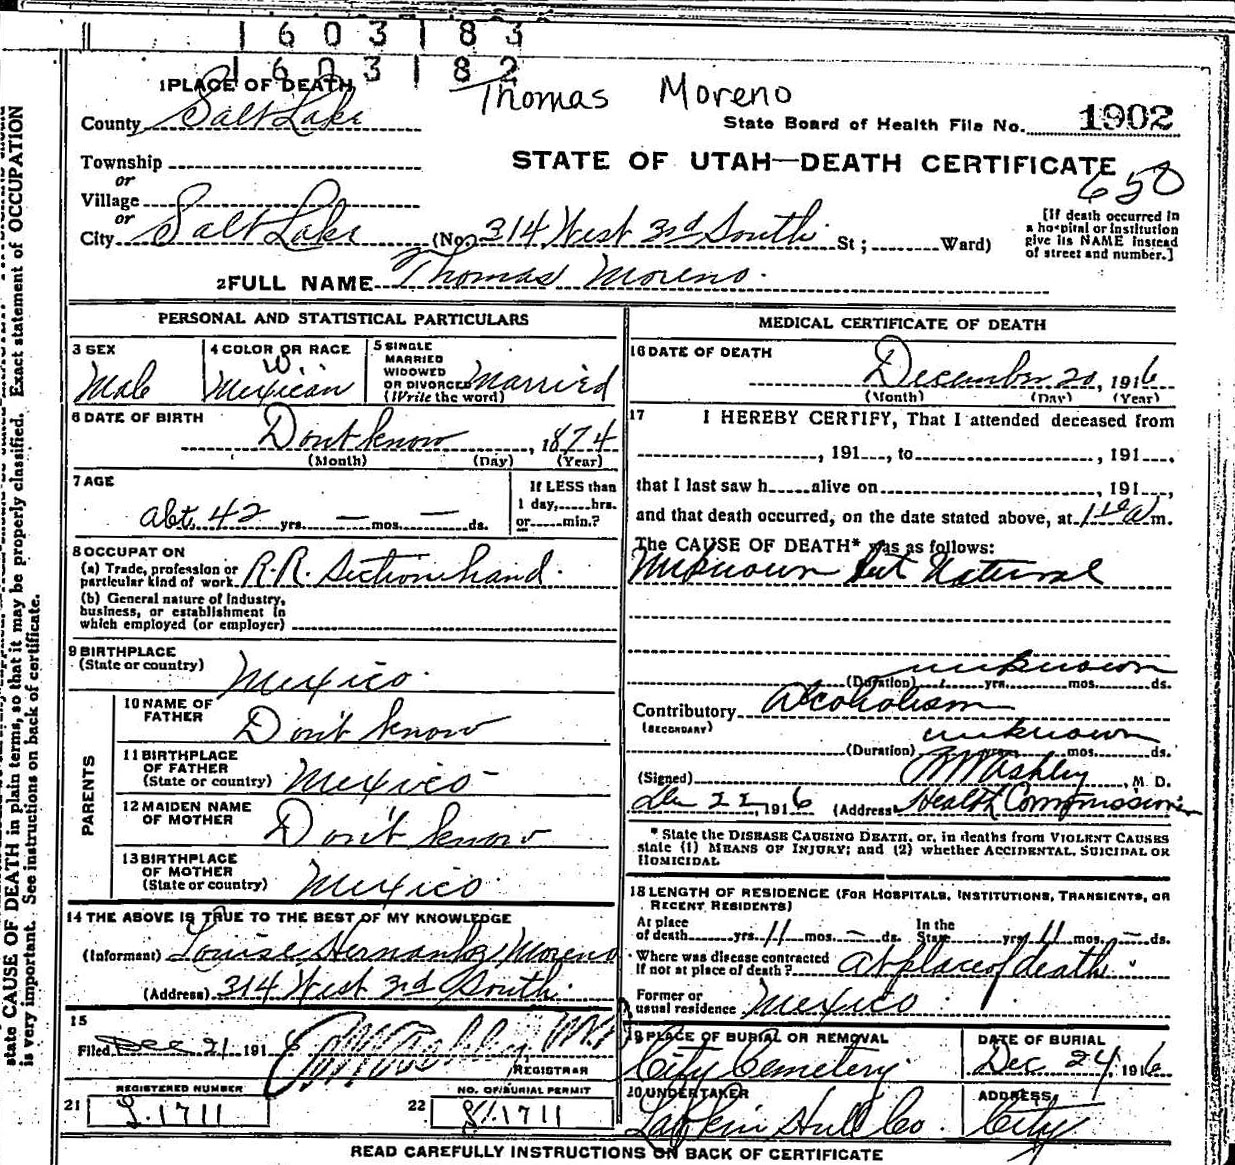 1603183
1603182
Thomas Moreno
1 PLACE OF DEATH
County Salt Lake
State Board of Health File No. 1902
Township
STATE OF UTAH—DEATH CERTIFICATE
or
650
Village
or
City Salt Lake (No. 314 West 3rd South St; Ward)
[If death occurred in
a hospital or Institution
give its NAME instead
of street and number.]
2 FULL NAME Thomas Moreno.
PERSONAL AND STATISTICAL PARTICULARS
3 SEX
Male
4 COLOR OR RACE
W.
Mexican
5 SINGLE
MARRIED
WIDOWED
OR DIVORCED
(Write the word)
Married
6 DATE OF BIRTH
Don't know, 1874
(Month) (Day) (Year)
7 AGE
abt. 42 yrs. — mos. — ds.
If LESS than
1 day, hrs.
or min.?
8 OCCUPAT ON
(a) Trade, profession or
particular kind of work R.R. Section hand.
(b) General nature of Industry,
business, or establishment in
which employed (or employer)
9 BIRTHPLACE
(State or country)
Mexico.
PARENTS
10 NAME OF
FATHER
Don't know
11 BIRTHPLACE
OF FATHER
(State or country) Mexico
12 MAIDEN NAME
OF MOTHER
Don't know
13 BIRTHPLACE
OF MOTHER
(State or country) Mexico.
14 THE ABOVE IS TRUE TO THE BEST OF MY KNOWLEDGE
(Informant) Louise Hernandez Moreno
(Address) 314 West 3rd South.
15
Filed Dec 21 191 6
REGISTRAR
REGISTERED NUMBER
21 1711
NO. OF BURIAL PERMIT
22 1711
MEDICAL CERTIFICATE OF DEATH
16 DATE OF DEATH
December 20, 1916
(Month) (Day) (Year)
17 I HEREBY CERTIFY, That I attended deceased from
, 191 , to , 191 ,
that I last saw h alive on , 191 ,
and that death occurred, on the date stated above, at m.
The CAUSE OF DEATH* was as follows:
Unknown but Natural
unknown
(Duration) yrs. mos. ds.
Contributory Alcoholism
(SECONDARY)
unknown
(Duration) mos. ds.
(Signed) Ashley, M. D.
Dec 22, 1916 (Address) Health Commissioner
* State the DISEASE CAUSING DEATH, or, in deaths from VIOLENT CAUSES
state (1) MEANS OF INJURY; and (2) whether ACCIDENTAL, SUICIDAL OR
HOMICIDAL
18 LENGTH OF RESIDENCE (FOR HOSPITALS, INSTITUTIONS, TRANSIENTS, OR
RECENT RESIDENTS)
At place
of death yrs. 11 mos. — ds.
In the
State yrs. 11 mos. — ds.
Where was disease contracted
If not at place of death? At place of death.
Former or
usual residence Mexico
19 PLACE OF BURIAL OR REMOVAL
City Cemetery
DATE OF BURIAL
Dec. 24, 1916
20 UNDERTAKER
Hull Co.
ADDRESS
City
READ CAREFULLY INSTRUCTIONS ON BACK OF CERTIFICATE
state CAUSE OF DEATH in plain terms, so that it may be properly classified. Exact statement of OCCUPATION
is very important. See instructions on back of certificate.